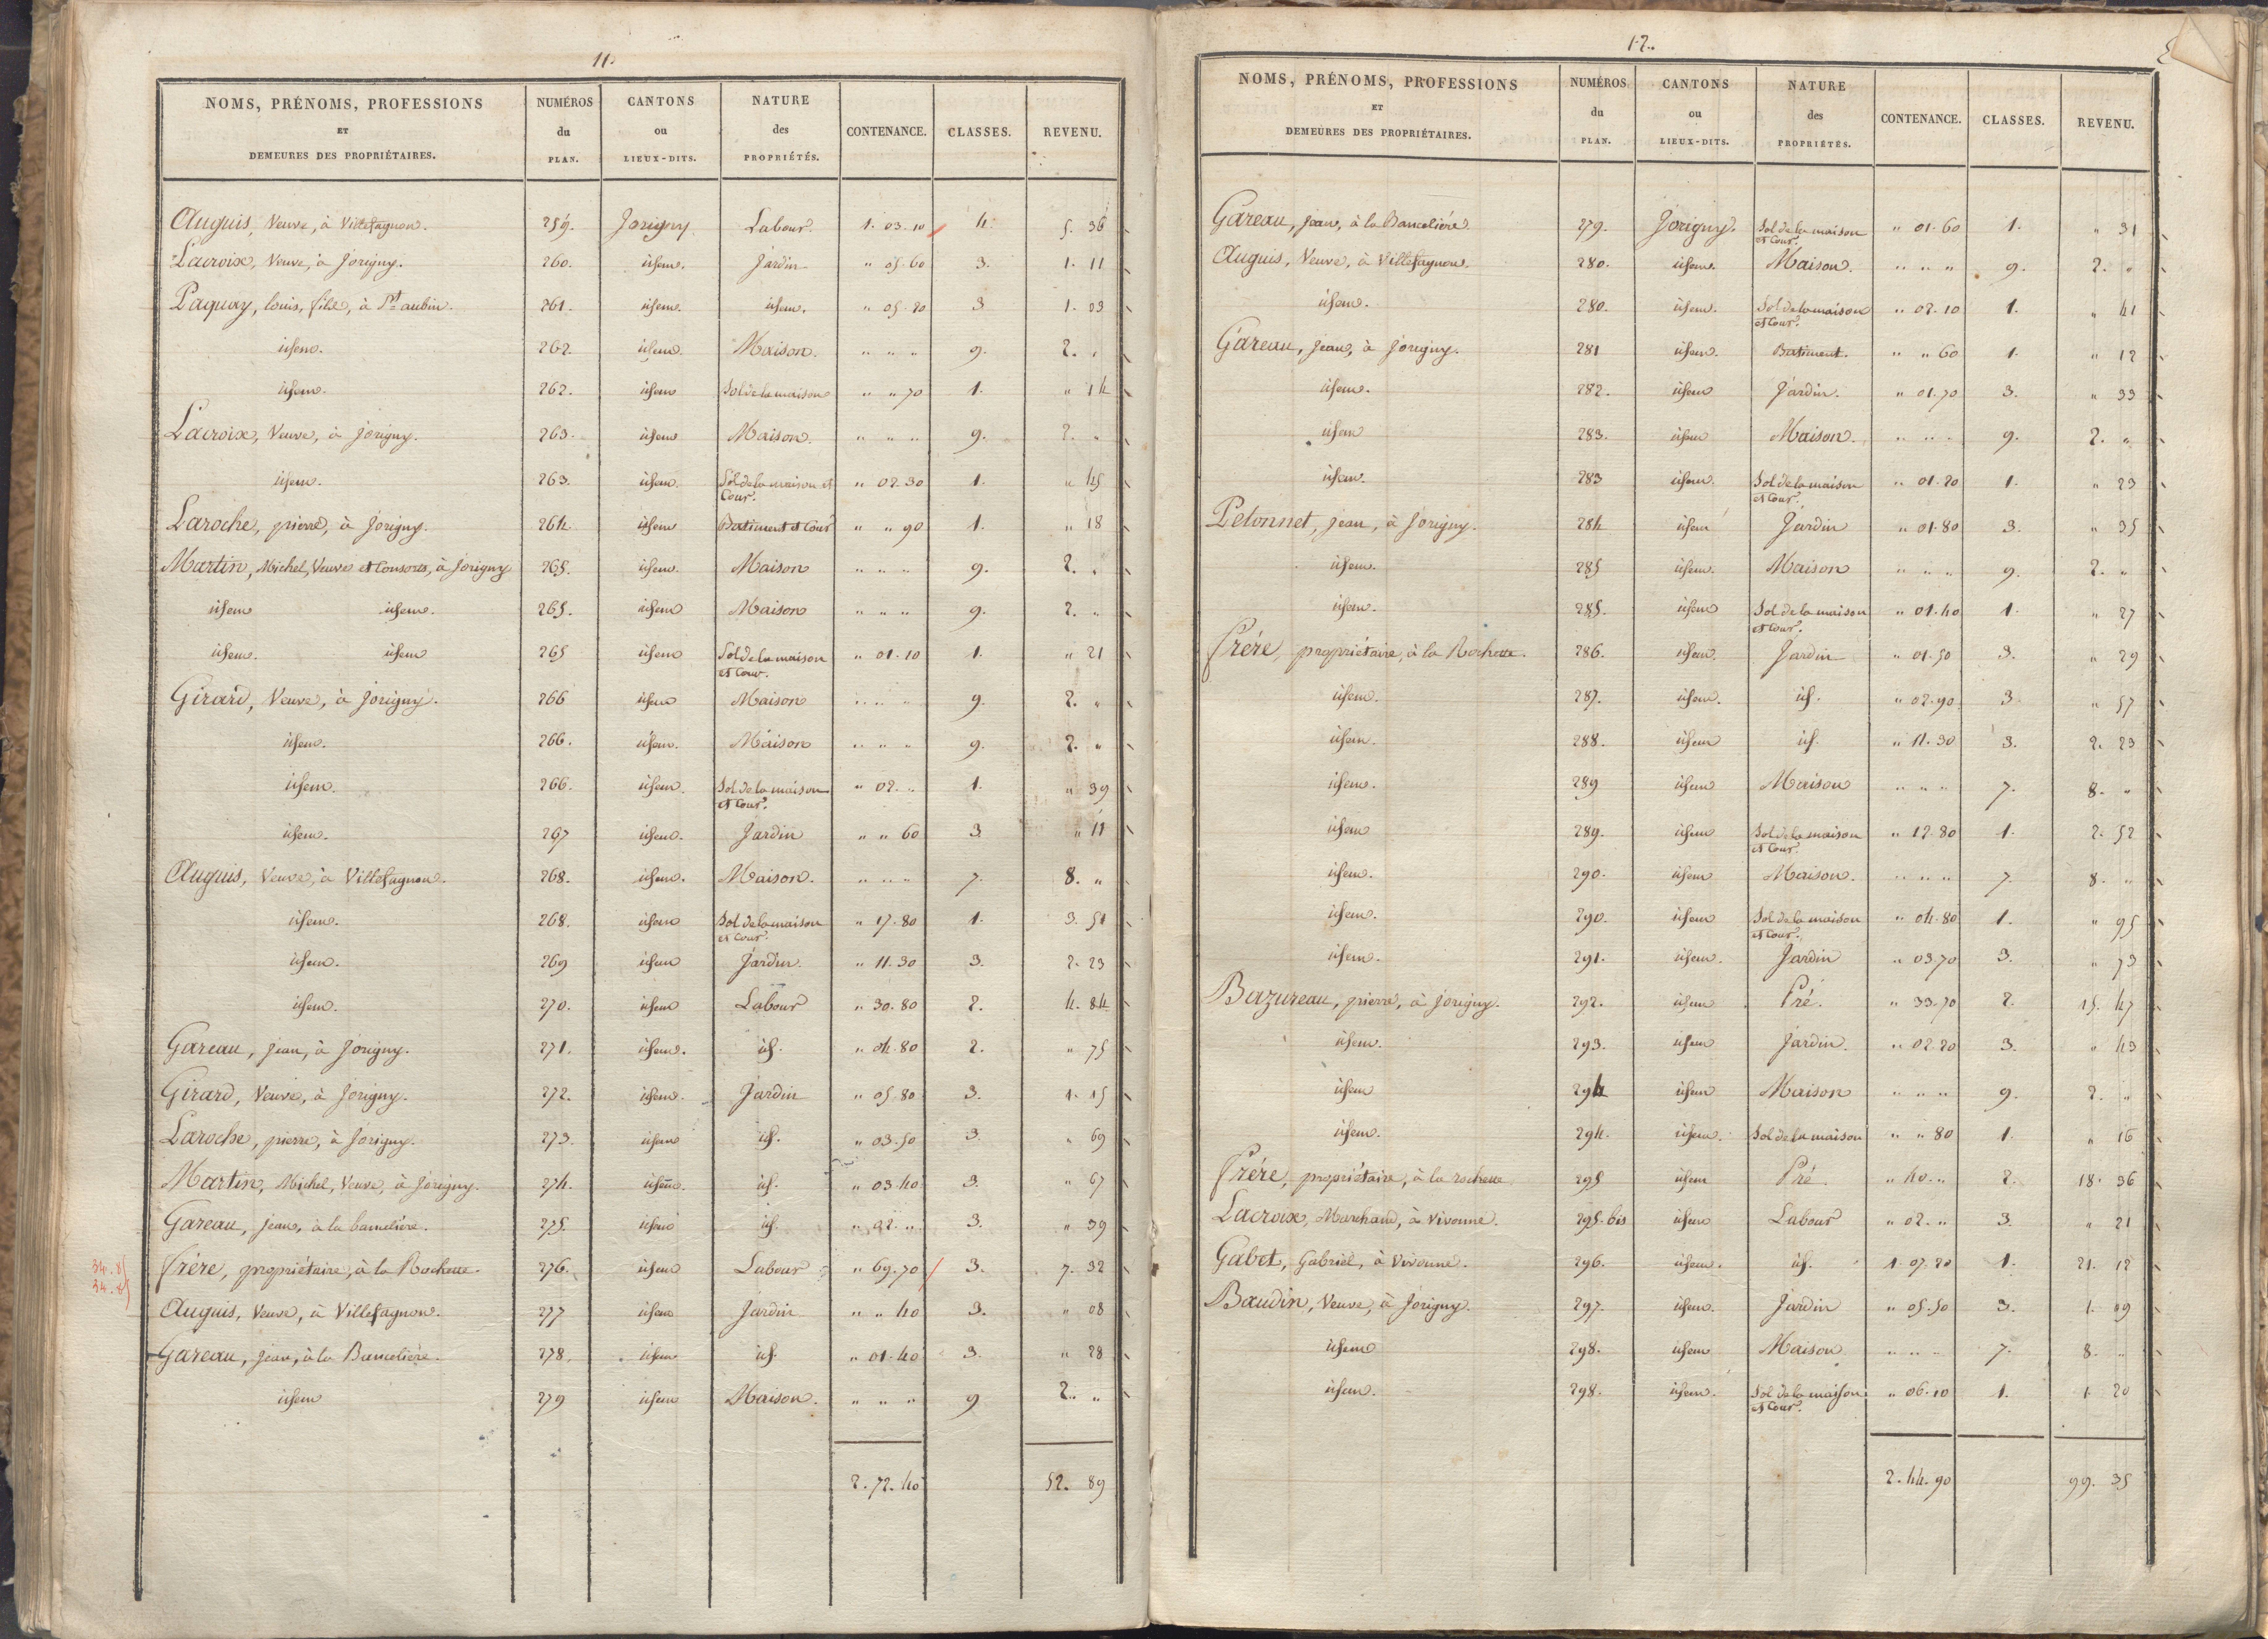 11.
NOMS, PRÉNOMS, PROFESSIONS ET DEMEURES DES PROPRIÉTAIRES. | NUMÉROS du PLAN. | CANTONS ou LIEUX-DITS. | NATURE des PROPRIÉTÉS. | CONTENANCE. | CLASSES. | REVENU.
Auguis, Veuve, à Villefagnon. 259. Jorigny Labour. 1. 03. 10 4. 5. 36
Lacroix, Veuve, à Jorigny. 260. idem. Jardin " 05. 60 3. 1. 11
Paquay, louis, fils, à St. aubin. 261. idem. idem. " 05. 20 3 1. 03
idem. 262. idem. Maison. " " " 9. 2. "
idem. 262. idem Sol de la maison " " 70 1. " 14
Lacroix, Veuve, à Jorigny. 263. idem Maison. " " " 9. 2. "
idem. 263. idem. Sol de la maison et Cour. " 02. 30 1. " 45
Laroche, pierre, à Jorigny. 264. idem Batiment et Cour " " 90 1. " 18
Martin, Michel, Veuve et Consorts, à Jorigny 265. idem. Maison " " " 9. 2. "
idem idem. 265. idem Maison " " " 9. 2. "
idem. idem 265 idem Sol de la maison et Cour. " 01. 10 1. " 21
Girard, Veuve, à Jorigny. 266 idem Maison " " " 9. 2. "
idem. 266. idem. Maison " " " 9. 2. "
idem. 266. idem. Sol de la maison et Cour. " 02. " 1. " 39
idem. 267 idem. Jardin " " 60 3 " 11
Auguis, Veuve, à Villefagnon. 268. idem. Maison. " " " 7. 8. "
idem. 268. idem Sol de la maison et Cour. " 17. 80 1. 3. 51
idem. 269 idem Jardin. " 11. 30 3. 2. 23
idem. 270. idem Labour " 30. 80 2. 4. 84
Gareau, Jean, à Jorigny. 271. idem. id. " 04. 80 2. " 75
Girard, Veuve, à Jorigny. 272. idem. Jardin " 05. 80 3. 1. 15
Laroche, pierre, à Jorigny. 273. idem id. " 03. 50 3. " 69
Martin, Michel, Veuve, à Jorigny. 274. idem. id. " 03. 40 3. " 67
Gareau, jean, à la bancelière. 275. idem id. " 02. " 3. " 39
34. 85
34. 85
frère, propriétaire, à la Rochette. 276. idem Labour " 69. 70 3. 7. 32
Auguis, Veuve, à Villefagnon. 277 idem Jardin " " 40 3. " 08
Gareau, jean, à la Bancelière. 278. idem id. " 01. 40 3. " 28
idem 279 idem Maison. " " " 9 2. "
2. 72. 40 52. 89
12.
NOMS, PRÉNOMS, PROFESSIONS ET DEMEURES DES PROPRIÉTAIRES. | NUMÉROS du PLAN. | CANTONS ou LIEUX-DITS. | NATURE des PROPRIÉTÉS. | CONTENANCE. | CLASSES. | REVENU.
Gareau, Jean, à la Bancelière 279. Jorigny. Sol de la maison et Cour. " 01. 60 1. " 31
Auguis, Veuve, à Villefagnon. 280. idem. Maison. " " " 9. 2. "
idem. 280. idem. Sol de la maison et Cour. " 02. 10 1. " 41
Gareau, Jean, à Jorigny. 281 idem. Batiment. " " 60 1. " 12
idem. 282. idem Jardin. " 01. 70 3. " 33
idem 283. idem Maison. " " " 9. 2. "
idem. 283 idem. Sol de la maison et Cour. " 01. 20 1. " 23
Petonnet, Jean, à Jorigny. 284 idem Jardin " 01. 80 3. " 35
idem. 285 idem. Maison " " " 9. 2. "
idem. 285. idem Sol de la maison et Cour. " 01. 40 1. " 27
frère, propriétaire, à la Rochette. 286. idem. Jardin " 01. 50 3. " 29
idem. 287. idem. id. " 02. 90 3. " 57
idem. 288. idem id. " 11. 30 3. 2. 23
idem. 289 idem Maison " " " 7. 8. "
idem 289. idem Sol de la maison et Cour. " 12. 80 1. 2. 52
idem. 290. idem Maison. " " " 7. 8. "
idem. 290. idem Sol de la maison et Cour. " 04. 80 1. " 95
idem. 291. idem. Jardin " 03. 70 3. " 73
Bazureau, pierre, à jorigny. 292. idem Pré. " 33. 70 2. 15. 47
idem. 293. idem Jardin. " 02. 20 3. " 43
idem 294 idem Maison " " " 9. 2. "
idem. 294. idem. Sol de la maison " " 80 1. " 16
frère, propriétaire, à la rochette. 295 idem Pré " 40. " 2. 18. 36
Lacroix, Marchand, à Vivonne. 295. bis idem Labour " 02. " 3. " 21
Gabet, Gabriel, à Vivonne. 296. idem. id. 1. 07. 20 1. 21. 12
Baudin, Veuve, à Jorigny. 297. idem. Jardin " 05. 50 3. 1. 09
idem 298. idem Maison " " " 7. 8. "
idem. 298. idem. Sol de la maison et Cour. " 06. 10 1. 1. 20
2. 44. 90 99. 35